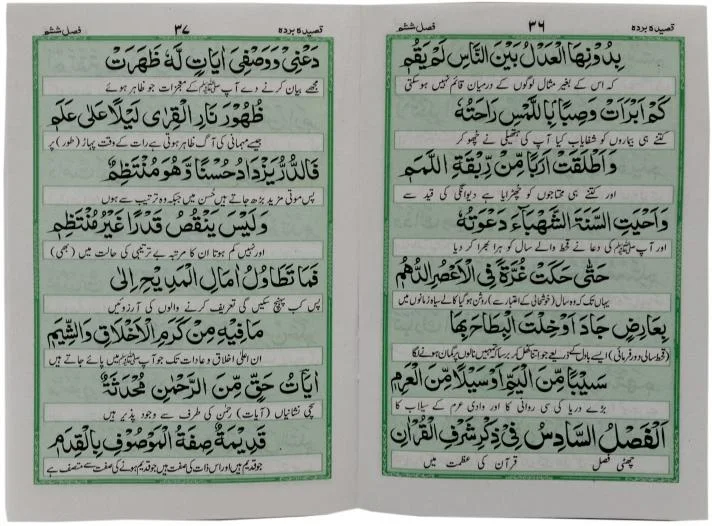 قصیدہ بردہ ۳۶ فصل ششم
بِدُوْنِهَا الْعَدْلُ بَيْنَ النَّاسِ لَمْ يَقُمِ
کہ اس کے بغیر مثال لوگوں کے درمیان قائم نہیں ہو سکتی
كَمْ اَبْرَاَتْ وَصِبًا بِاللَّمْسِ رَاحَتُهٗ
کتنے ہی بیماروں کو شفایاب کیا آپ کی ہتھیلی نے چھو کر
وَ اَطْلَقَتْ اَرِبًا مِّنْ رِّبْقَةِ اللَّمَمِ
اور کتنے ہی محتاجوں کو چھڑایا ہے دیوانگی کی قید سے
وَ اَحْيَتِ السَّنَةَ الشَّهْبَآءَ دَعْوَتُهٗ
اور آپ ﷺ کی دعا نے قحط والے سال کو ہرا بھرا کر دیا
حَتّٰى حَكَتْ غُرَّةً فِى الْاَعْصُرِ الدُّهُمِ
یہاں تک کہ وہ سال (خوشحالی کے اعتبار سے) روشن ہو گیا کالے سیاہ زمانوں میں
بِعَارِضٍ جَادَ اَوْ خِلْتَ الْبِطَاحَ بِهَا
(قحط سالی دور فرمائی) ایسے بادل کے ذریعے جو اتنا کھل کر برسا کہ تمہیں نالوں پر گمان ہونے لگا
سَيْبًا مِّنَ الْيَمِّ اَوْ سَيْلًا مِّنَ الْعَرِمِ
بڑے دریا کی سی روانی کا اور وادی عرم کے سیلاب کا
اَلْفَصْلُ السَّادِسُ فِىْ ذِكْرِ شَرَفِ الْقُرْاٰنِ
چھٹی فصل قرآن کی عظمت میں
قصیدہ بردہ ۳۷ فصل ششم
دَعْنِىْ وَ وَصْفِىَ اٰيَاتٍ لَهٗ ظَهَرَتْ
مجھے بیان کرنے دے آپ ﷺ کے معجزات جو ظاہر ہوئے
ظُهُوْرَ نَارِ الْقِرٰى لَيْلًا عَلٰى عَلَمِ
جیسے مہمانی کی آگ ظاہر ہوتی ہے رات کے وقت پہاڑ (طور) پر
فَالدُّرُّ يَزْدَادُ حُسْنًا وَّهُوَ مُنْتَظِمٌ
پس موتی مزید بڑھ جاتے ہیں حُسن میں جبکہ وہ ترتیب سے ہوں
وَ لَيْسَ يَنْقُصُ قَدْرًا غَيْرَ مُنْتَظِمِ
اور نہیں کم ہوتا ان کا مرتبہ بے ترتیبی کی حالت میں (بھی)
فَمَا تَطَاوُلُ اٰمَالِ الْمَدِيْحِ اِلٰى
پس کب پہنچ سکیں گی تعریف کرنے والوں کی آرزوئیں
مَا فِيْهِ مِنْ كَرَمِ الْاَخْلَاقِ وَ الشِّيَمِ
ان اعلٰی اخلاق و عادات تک جو آپ ﷺ میں پائے جاتے ہیں
اٰيَاتُ حَقٍّ مِّنَ الرَّحْمٰنِ مُحْدَثَةٌ
سچی نشانیاں (آیات) رحمٰن کی طرف سے وجود پذیر ہیں
قَدِيْمَةٌ صِفَةُ الْمَوْصُوْفِ بِالْقِدَمِ
جو قدیم ہیں اور اس ذات کی صفت ہیں جو قدیم ہونے کی صفت سے متصف ہے